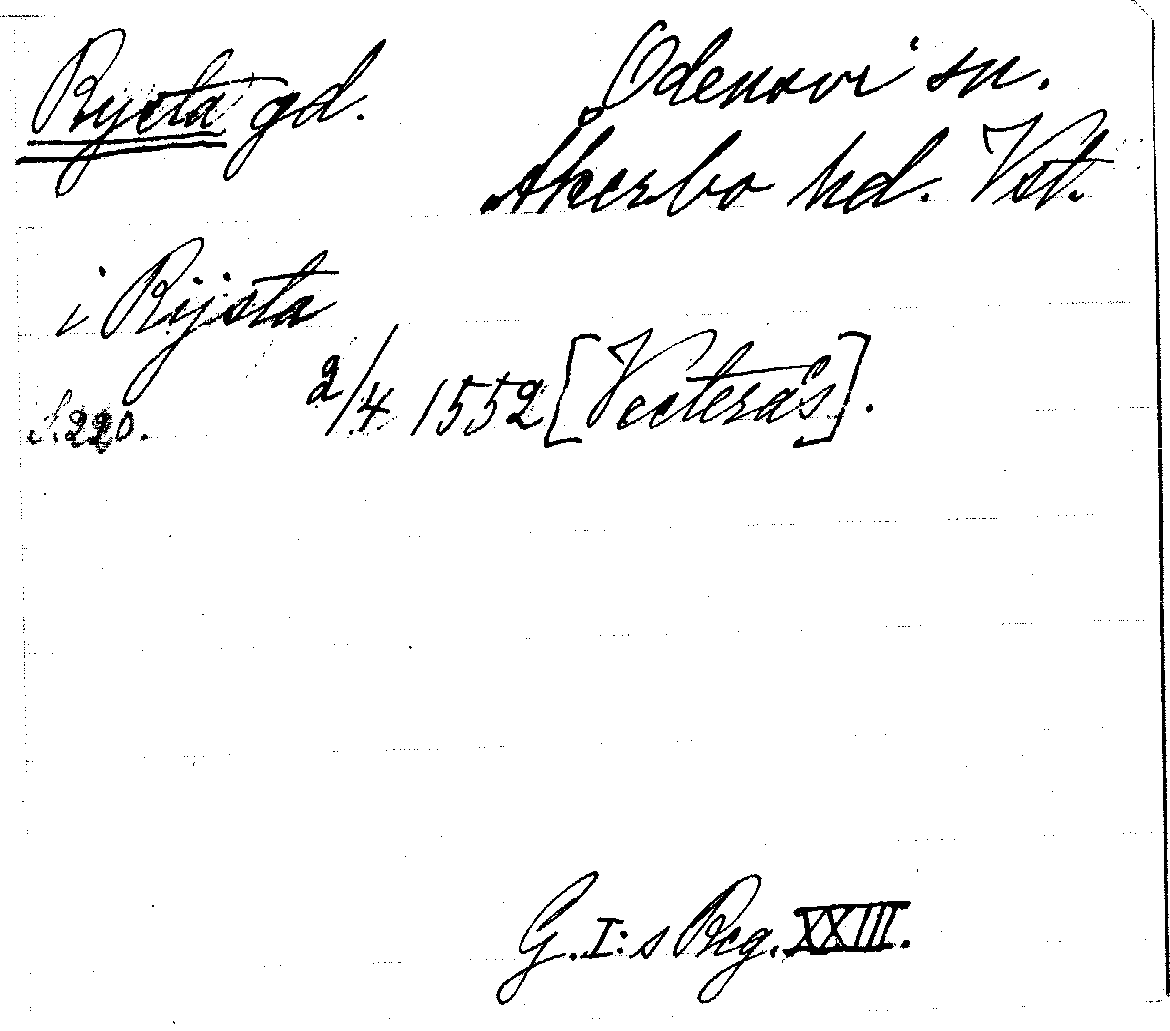 Rysta gd. Odensvi sn.
Åkerbo hd. Vst.
i Rijsta
2/4 1552 [Vesterås].
S. 220.
G. I:s Reg. XXIII.